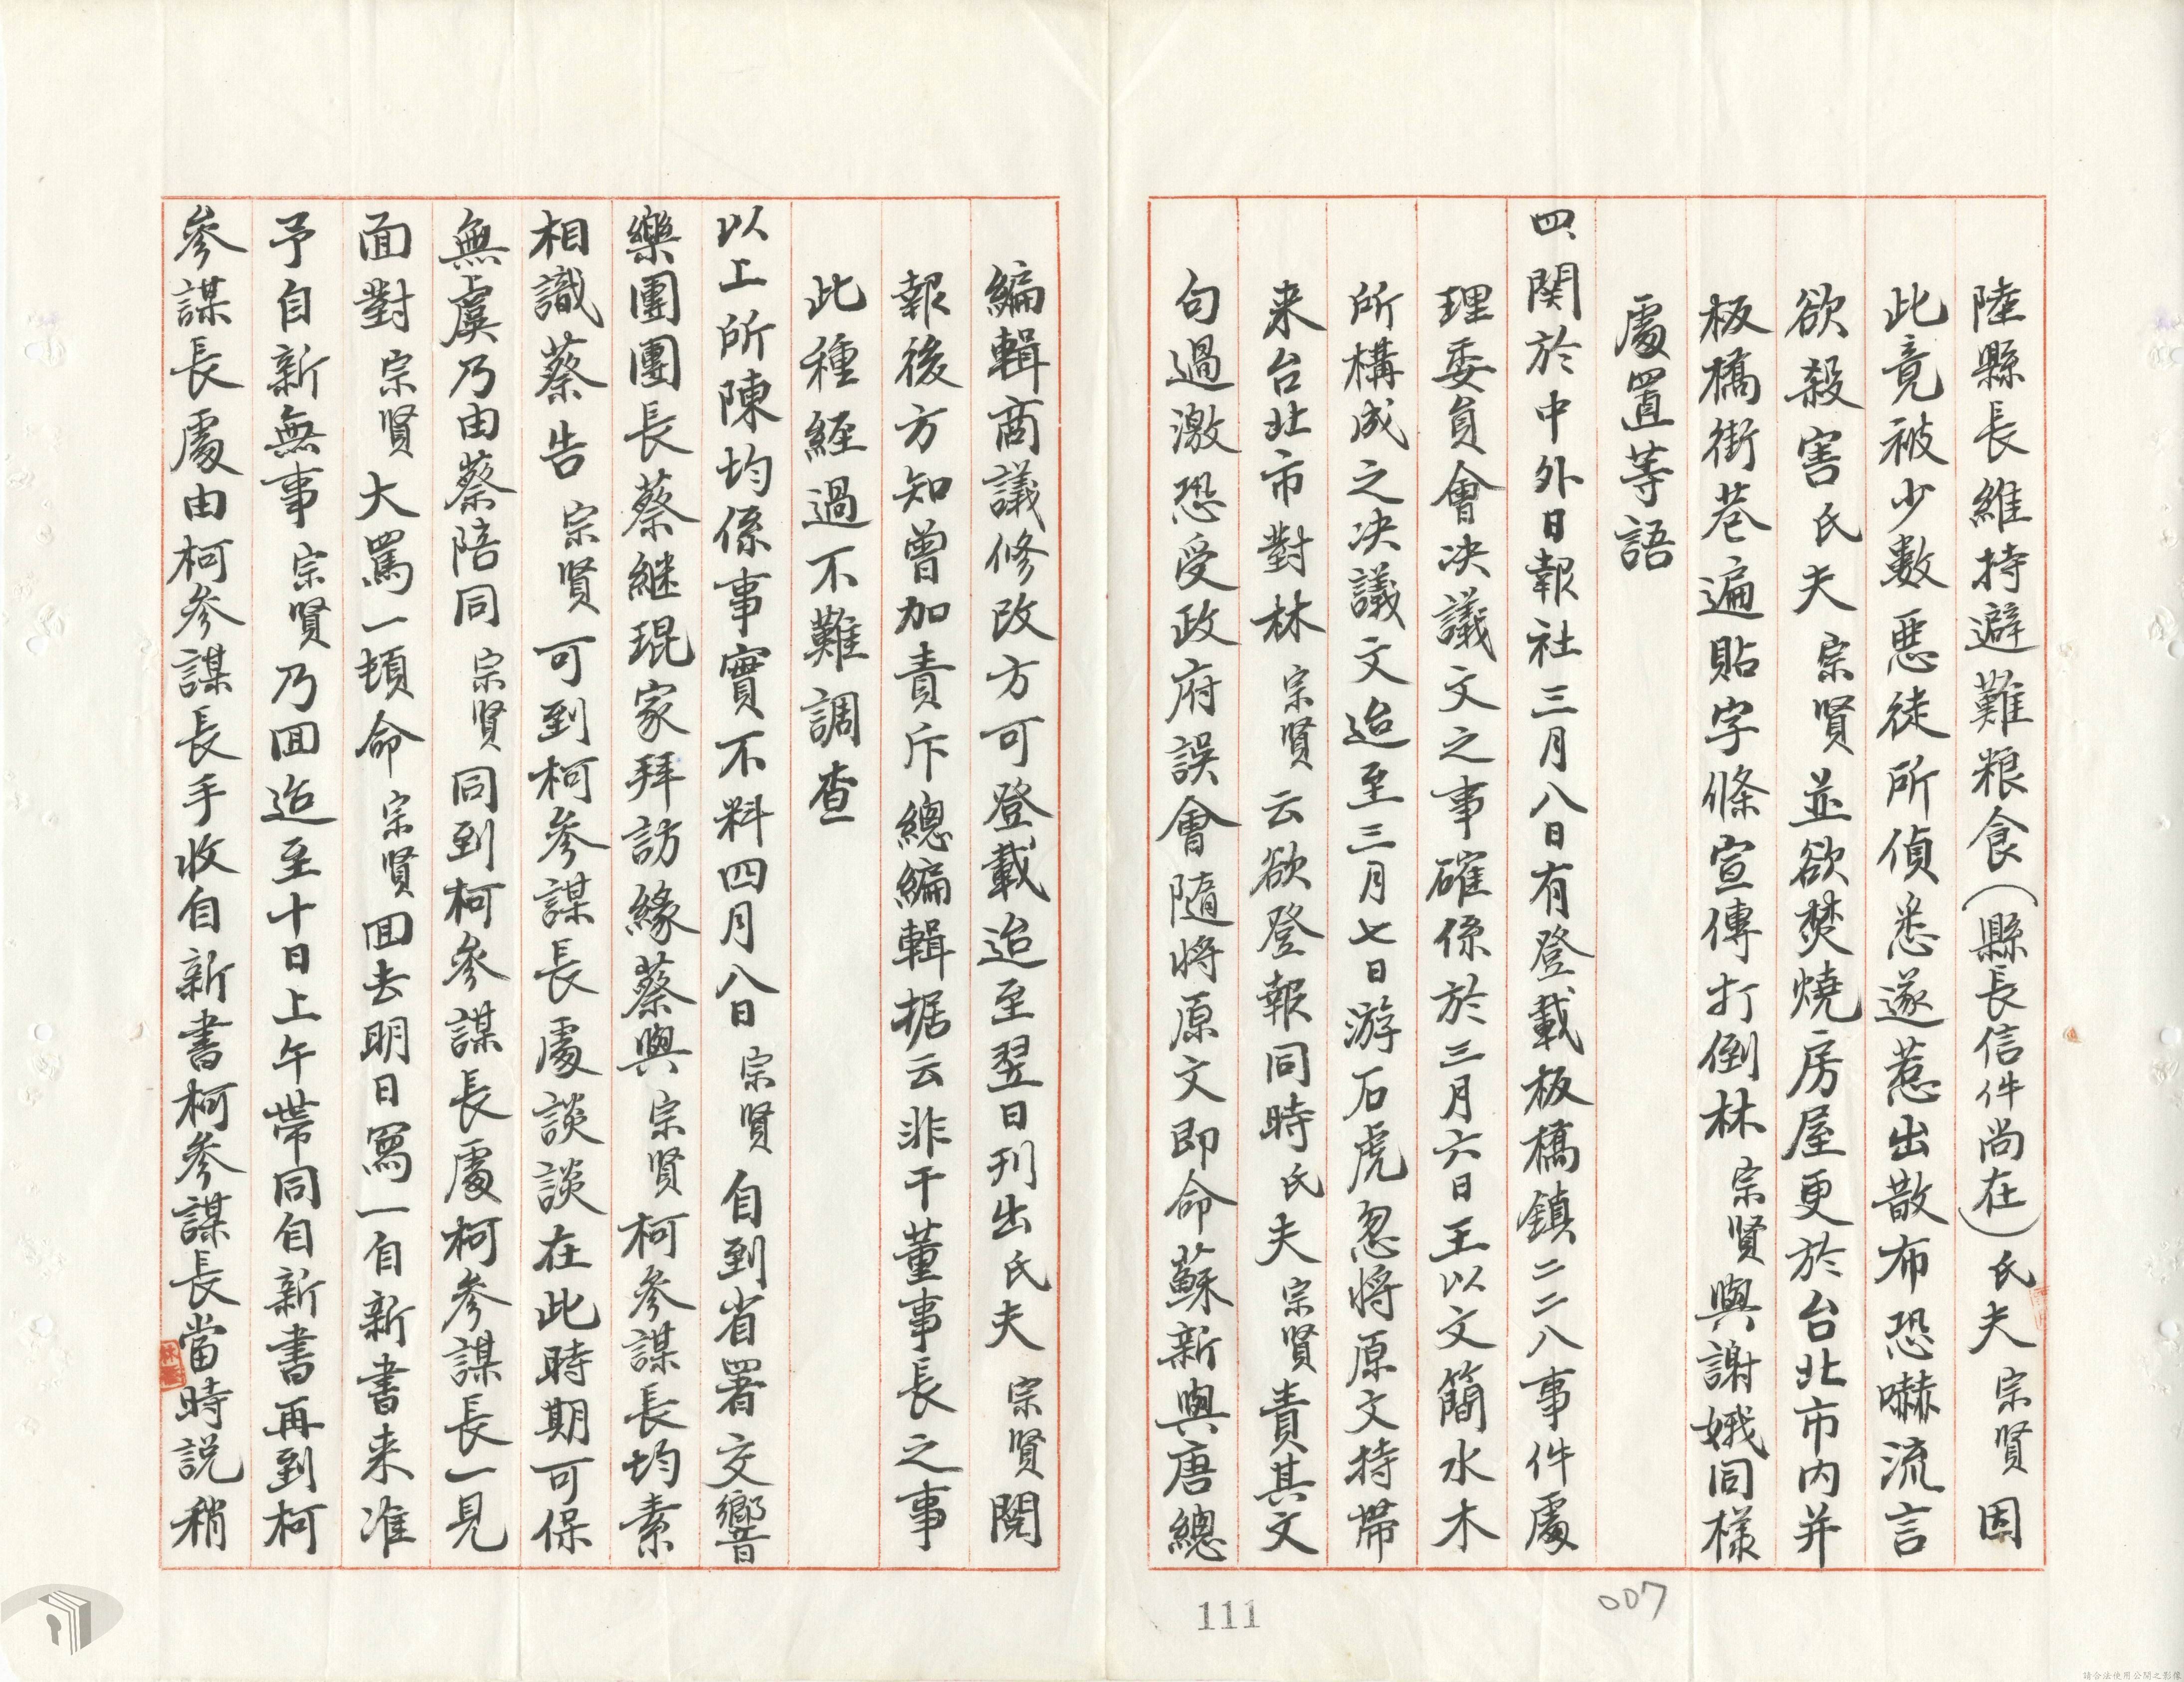 陸縣長維持避難粮食(縣長信件尚在)氏夫宗賢因
此竟被少數惡徒所偵悉遂惹出散布恐嚇流言
欲殺害氏夫宗賢並欲焚燒房屋更於台北市内并
板橋街巷遍貼字條宣傳打倒林宗賢與謝娥同樣
處置等語
四、関於中外日報社三月八日有登載板橋鎮二二八事件處
理委員會决議文之事確係於三月六日王以文簡水木
所構成之决議文迨至三月七日游石虎忽将原文持帶
来台北市對林宗賢云欲登報同時氏夫宗賢責其文
句過激恐受政府誤會隨将原文即命蘇新與唐總
編輯商議修改方可登載迨至翌日刊出氏夫宗賢閱
報後方知曾加責斥總編輯据云非干董事長之事
此種經過不難調查
以上所陳均係事實不料四月八日宗賢自到省署交響
樂團團長蔡継琨家拜訪緣蔡與宗賢柯參謀長均素
相識蔡告宗賢可到柯參謀長處談談在此時期可保
無虞乃由蔡陪同宗賢同到柯參謀長處柯參謀長一見
面對宗賢大罵一頓命宗賢囬去明日寫一自新書来准
予自新無事宗賢乃囬迨至十日上午帶同自新書再到柯
參謀長處由柯參謀長手收自新書柯參謀長當時説稍
111
007
請合法使用公開之影像